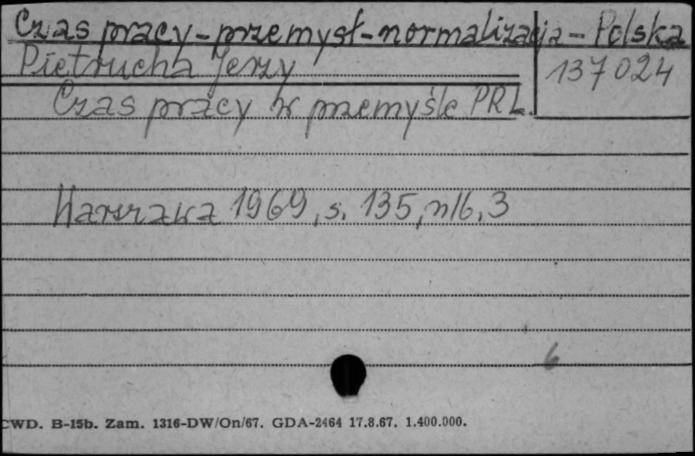 Czas pracy - przemysł - normalizacja - Polska
Pietrucha Jerzy
137024
Czas pracy w przemyśle PRL.
Warszawa 1969, s. 135, nlb. 3
6
CWD. B-15b. Zam. 1316-DW/On/67. GDA-2464 17.8.67. 1.400.000.